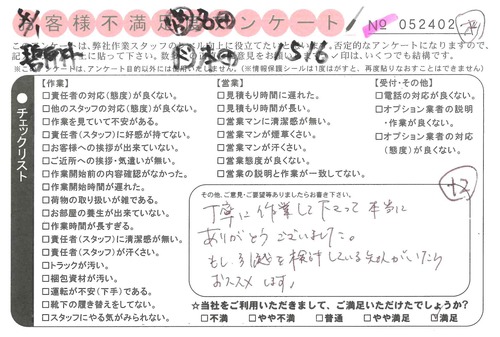 お客様不満足度アンケート
№ 052402
※このアンケートは、アンケート目的以外には使用いたしません。(※情報保護シールは1度はがすと、再度貼りなおすことはできません)
チェックリスト
【作業】
□責任者の対応(態度)が良くない。
□他のスタッフの対応(態度)が良くない。
□作業を見ていて不安がある。
□責任者(スタッフ)に好感が持てない。
□お客様への挨拶が出来ていない。
□ご近所への挨拶・気遣いが無い。
□作業開始前の内容確認がなかった。
□作業開始時間が遅れた。
□荷物の取り扱いが雑である。
□お部屋の養生が出来ていない。
□作業時間が長すぎる。
□責任者(スタッフ)に清潔感が無い。
□責任者(スタッフ)が汗くさい。
□トラックが汚い。
□梱包資材が汚い。
□運転が不安(下手)である。
□靴下の履き替えをしてない。
□スタッフにやる気がみられない。
【営業】
□見積もり時間に遅れた。
□見積もりが長い。
□営業マンに清潔感が無い。
□営業マンが煙草くさい。
□営業マンが汗くさい。
□営業態度が良くない。
□営業の説明と作業が一致してない。
【受付・その他】
□電話の対応が良くない。
□オプション業者の説明
・作業が良くない。
□オプション業者の対応
(態度)が良くない。
その他、ご意見・ご要望等ありましたらお書き下さい。
丁寧に作業して下さって本当に
ありがとうございました。
もし引越を検討している知人がいたら
おススメします。
☆当社をご利用いただきまして、ご満足いただけたでしょうか?
□不満 □やや不満 □普通 □やや満足 ☑満足